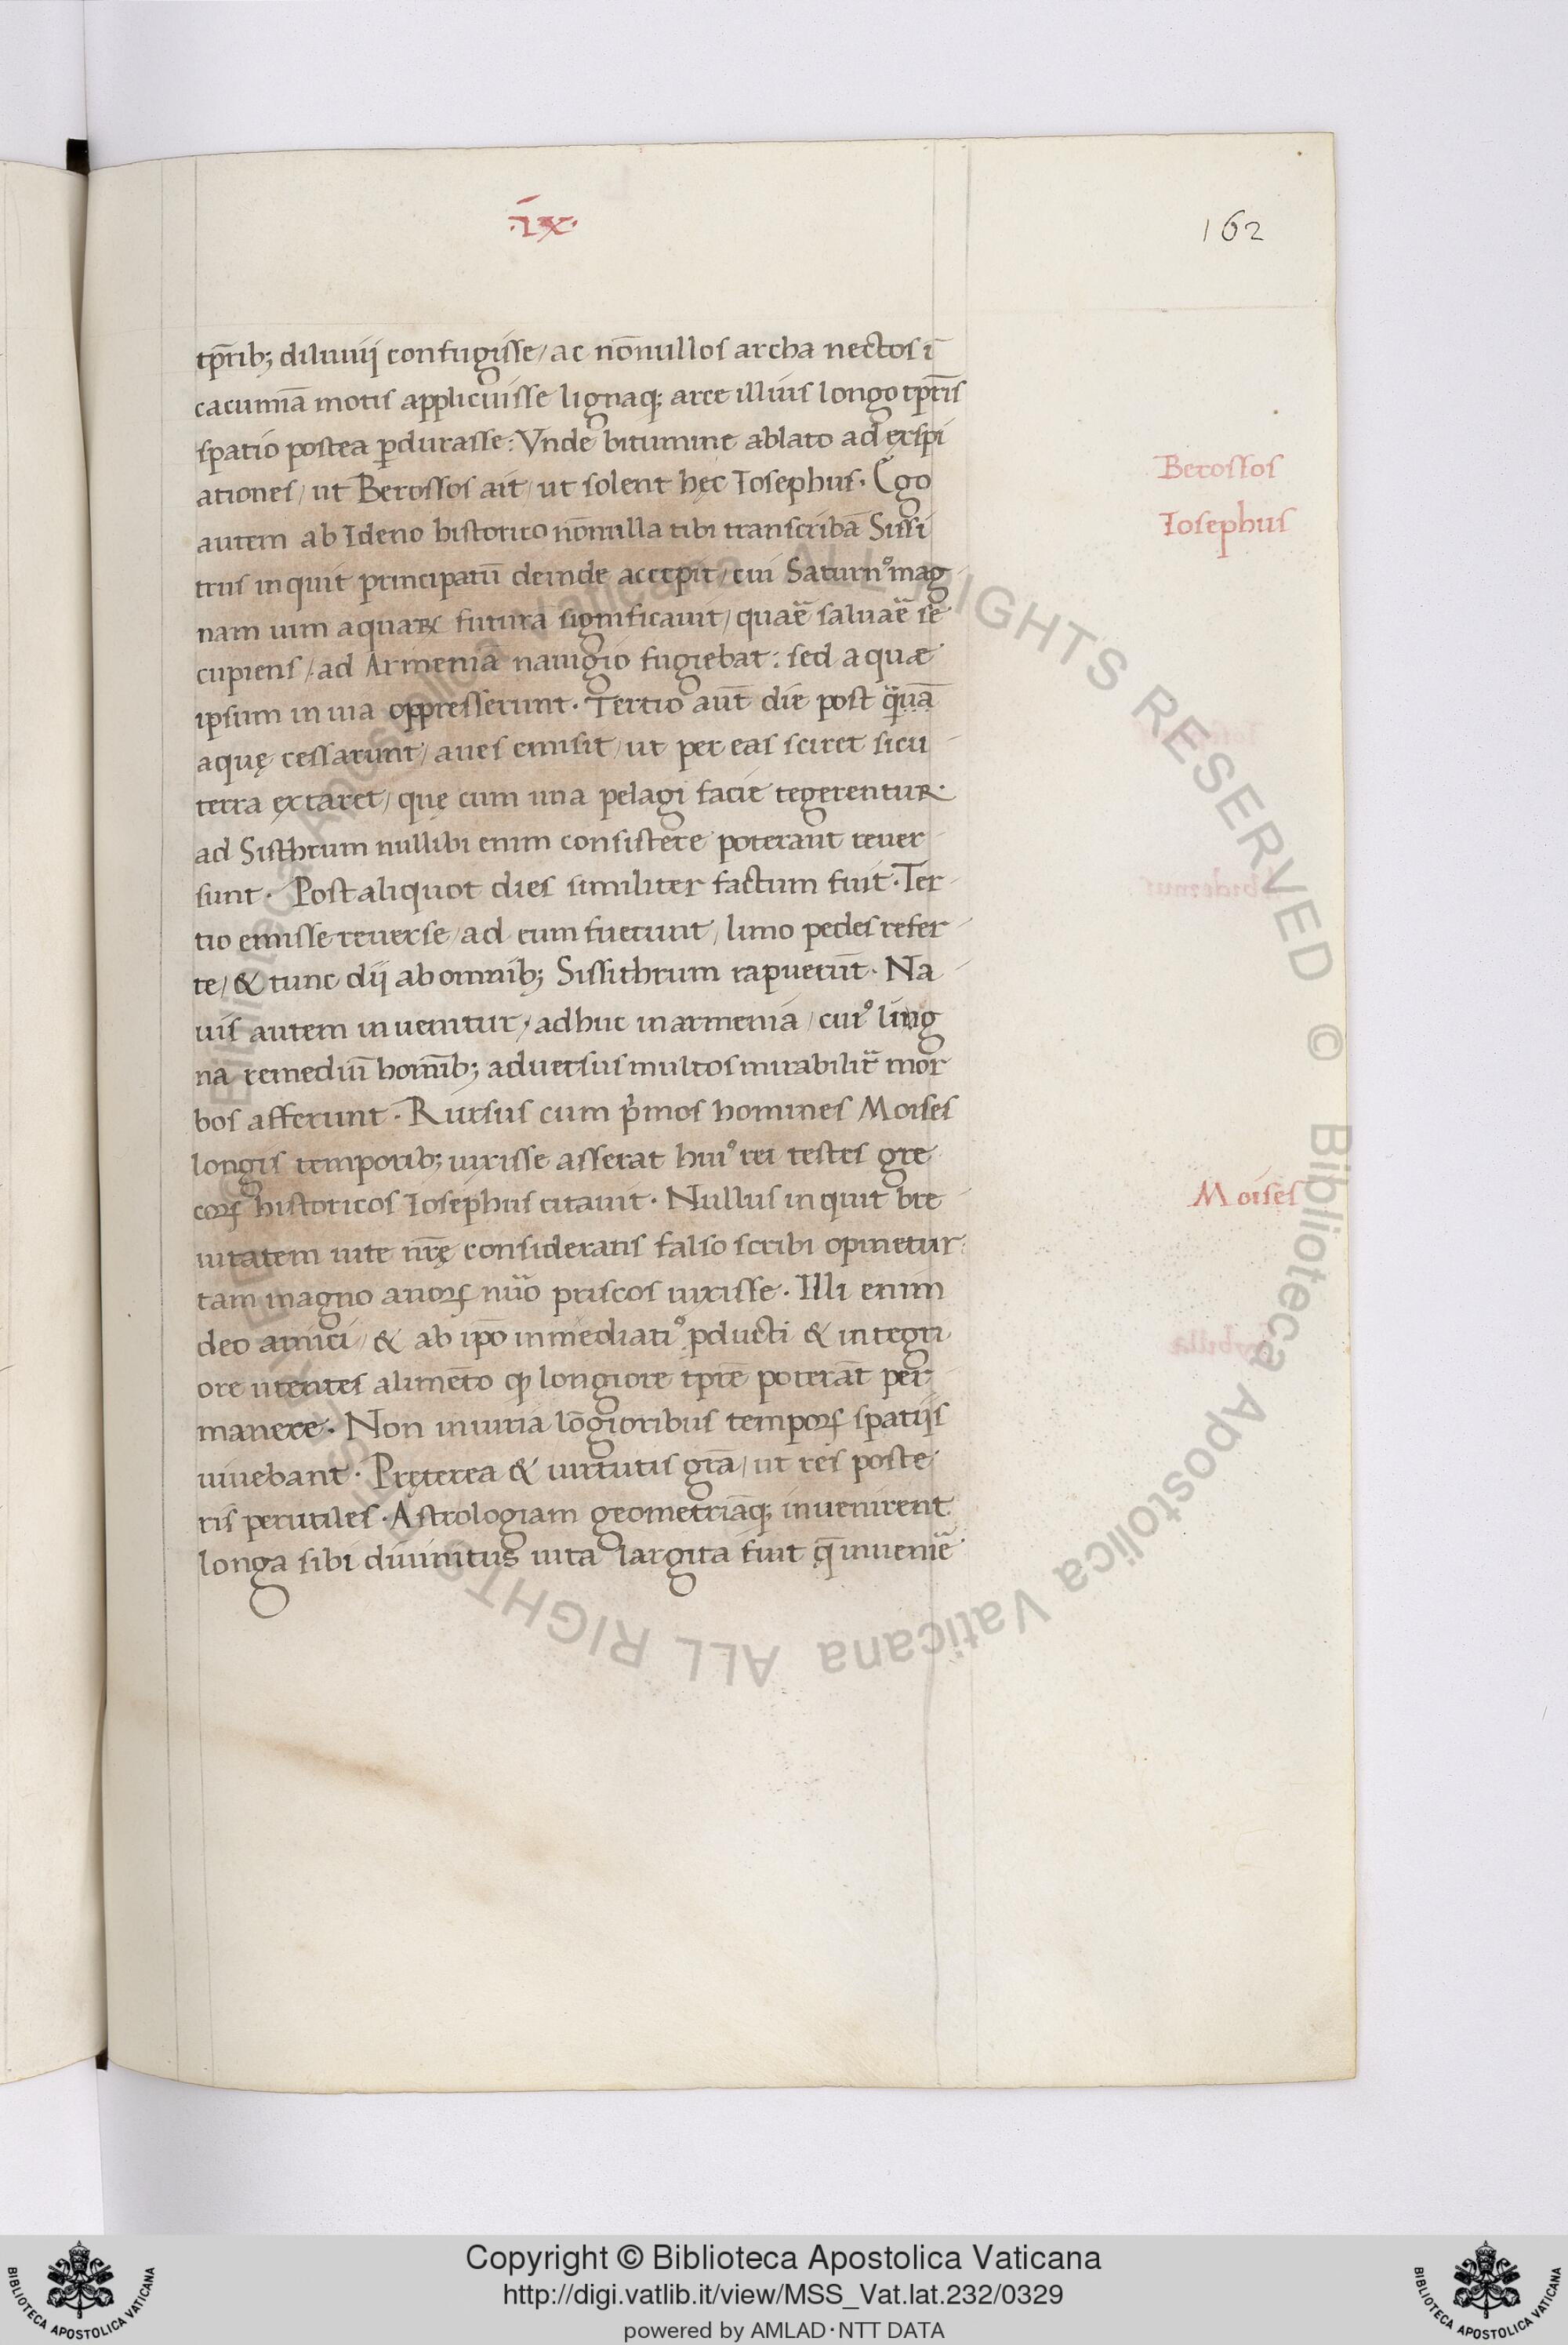 ·ıx·
162
tp̄rib; diluuij confugisse/ ac nōnullos archa nectos ı̄
cacumiā motis applicuisse lignaq; arce illius longo tp̄ris
spatio postea ꝑdurasse: Vnde bitumine ablato ad exspi
ationes/ ut Berossos ait/ ut solent hęc Iosephus· Ego
autem ab Ideno historico nōnulla tibi transcribā Sissi
trus inquit principatū deinde accepit/ cui Saturn⁹ mag
nam uim aquaꝝ futura significauit/ quaē saluaē se
cupiens/ ad Armeniā nauigio fugiebat: sed aquæ
ipsum in uia oppresserunt· Tertio aūt die post quā
aquę cessarunt/ aues emisit/ ut per eas sciret sicu
terra extaret/ quę cum una pelagi facie tegerentur·
ad Sisthrum nullibi enim consistere poterant reuer
sunt· Post aliquot dies similiter factum fuit· Ter
tio emisse reuerse/ ad eum fuerunt/ limo pedes refer
te/ & tunc dij ab omnib; Sissithrum rapuerūt· Na
uis autem inuenitur/ adhuc in armenia/ cui⁹ ling
na remediū homīb; aduersus multos mirabilit̄ mor
bos afferunt· Rursus cum pⁱmos homines Moises
longis temporib; uixisse asserat hui⁹ rei testes gre
coꝝ historicos Iosephus citauit· Nullus inquit bre
uitatem uite nr̄ę consideratis falso scribi opinetur
tam magno anoꝝ nūo priscos uixisse· Illi enim
deo amici/ & ab ip̄o inmediati⁹ ꝓducti & integri
ore utentes alimēto ꝙ longiore tp̄re poterāt per
manere· Non iniuria lōgioribus tempoꝝ spatijs
uiuebant· Pręterea & uirtutis gr̄a/ ut res poste
ris perutiles· Astrologiam geometriāq; inuenirent
longa sibi diuinitus uita largita fuit q̄ inueniē
Berossos
Iosephus
Moises
Copyright © Biblioteca Apostolica Vaticana
http://digi.vatlib.it/view/MSS_Vat.lat.232/0329
powered by AMLAD·NTT DATA
BIBLIOTECA APOSTOLICA VATICANA
BIBLIOTECA APOSTOLICA VATICANA
Biblioteca Apostolica Vaticana ALL RIGHTS RESERVED © Biblioteca Apostolica Vaticana ALL RIGHTS RESERVED ©